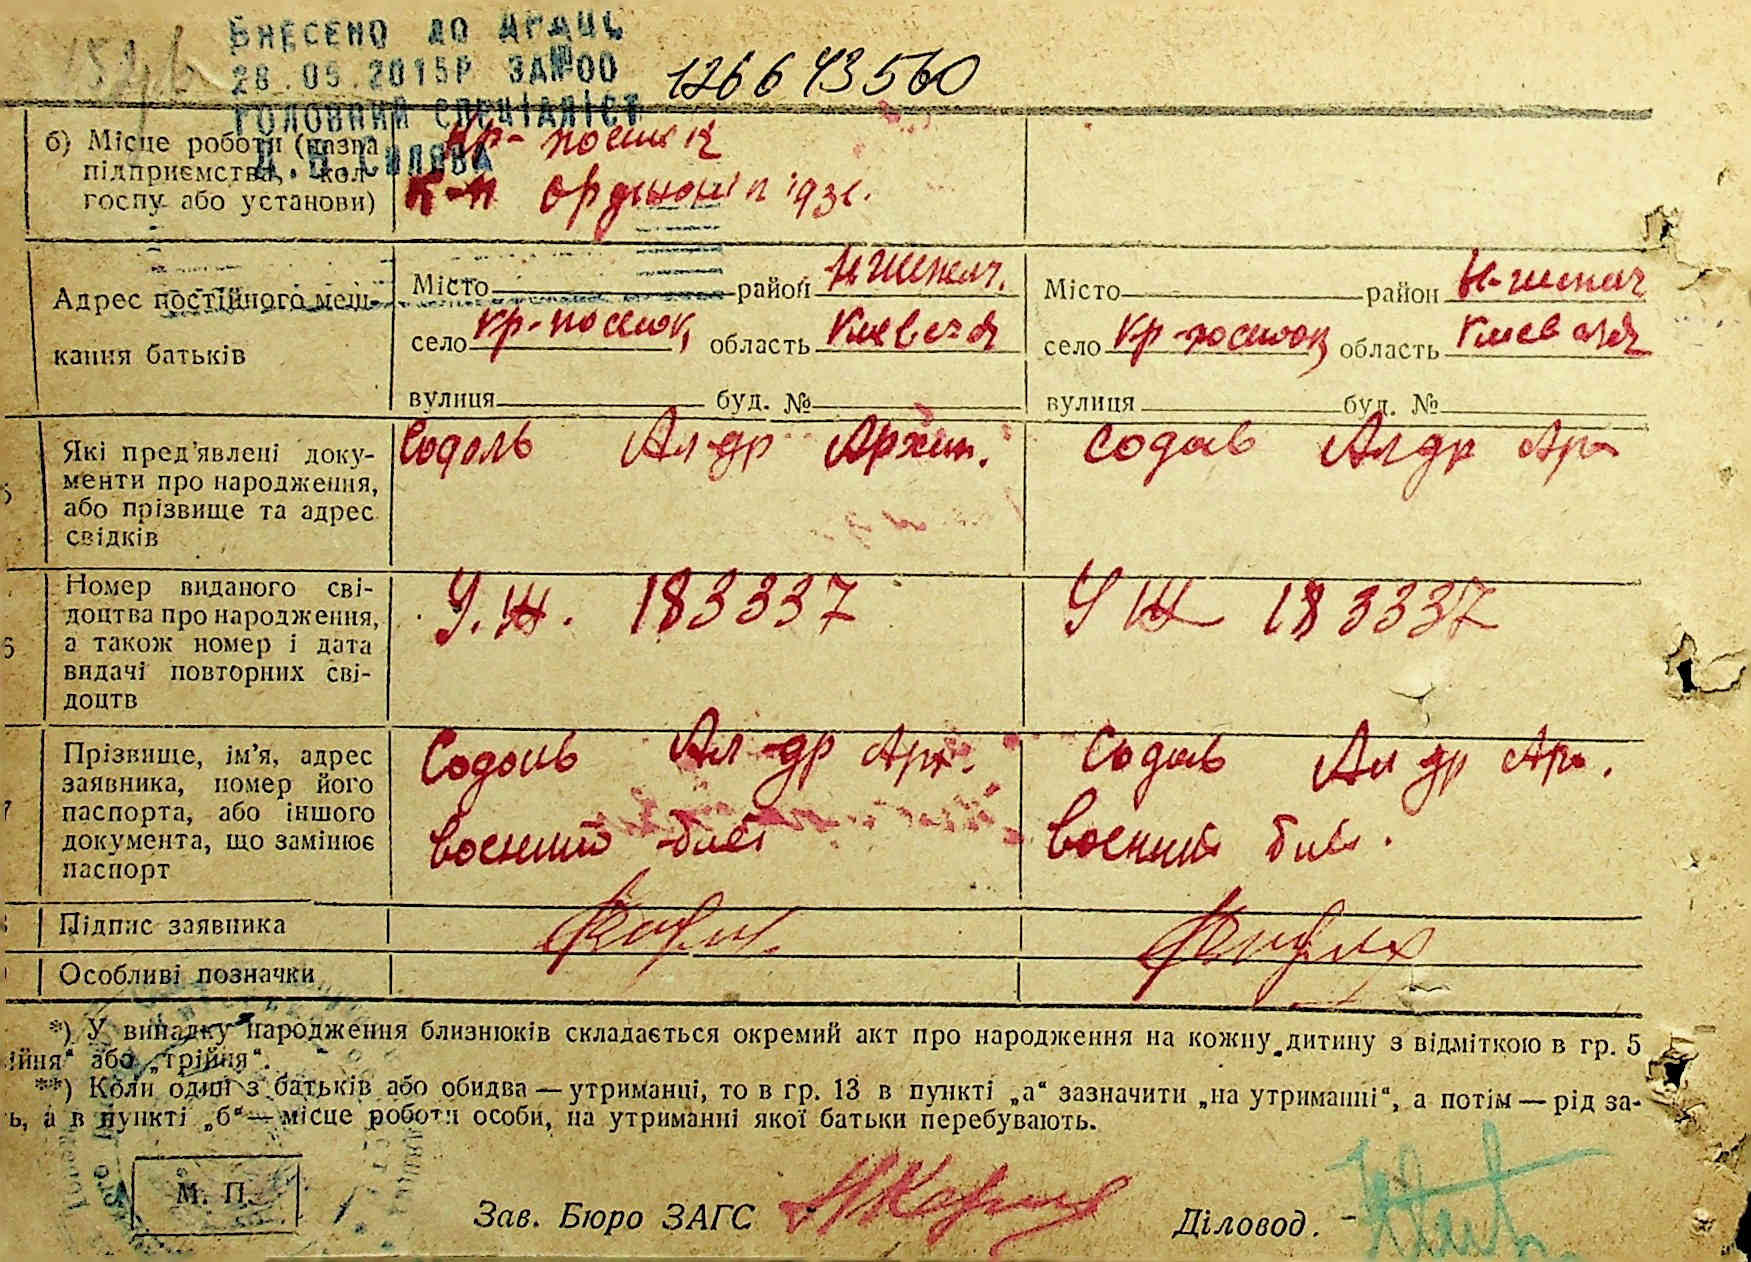 ВНЕСЕНО ДО ДРАЦС
28.05.2015Р ЗА№00 126643560
ГОЛОВНИЙ СПЕЦІАЛІСТ
б) Місце роботи (назва Кр-поселок
підприємства, кол-
госпу або установи)
Місто район
Адрес постійного меш-
село Кр-поселок, область Киевская
кання батьків
вулиця буд. №
Місто район
село Кр-поселок, область Киевская
вулиця буд. №
Які пред'явлені доку-
менти про народження,
або прізвище та адрес
свідків
Содоль Ал-др Архип.
Содоль Ал-др Арх
Номер виданого сві-
доцтва про народження,
а також номер і дата
видачі повторних сві-
доцтв
У.Ж. 183337
УЖ 183337
Прізвище, ім'я, адрес
заявника, номер його
паспорта, або іншого
документа, що замінює
паспорт
Содоль Ал-др Арх.
военний билет
Содоль Ал-др Арх.
военний бил.
Підпис заявника
Особливі позначки
*) У випадку народження близнюків складається окремий акт про народження на кожну дитину з відміткою в гр. 5
ійня" або „трійня".
**) Коли один з батьків або обидва — утриманці, то в гр. 13 в пункті „а" зазначити „на утриманні", а потім — рід за-
ь, а в пункті „б" — місце роботи особи, на утриманні якої батьки перебувають.
М. П.
Зав. Бюро ЗАГС
Діловод.